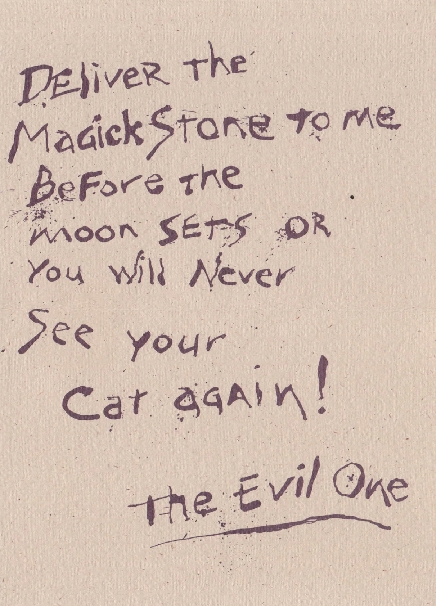 Deliver the
Magick Stone to me
Before the
moon SETS OR
You Will Never
See your
Cat again!
The Evil One